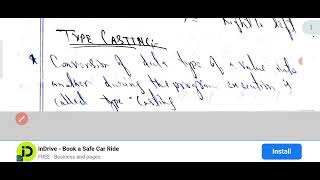 right to left
TYPE CASTING:-
* Conversion of data type of a value into
another during the program execution is
called type-Casting
inDrive - Book a Safe Car Ride
FREE · Business and pages
Install